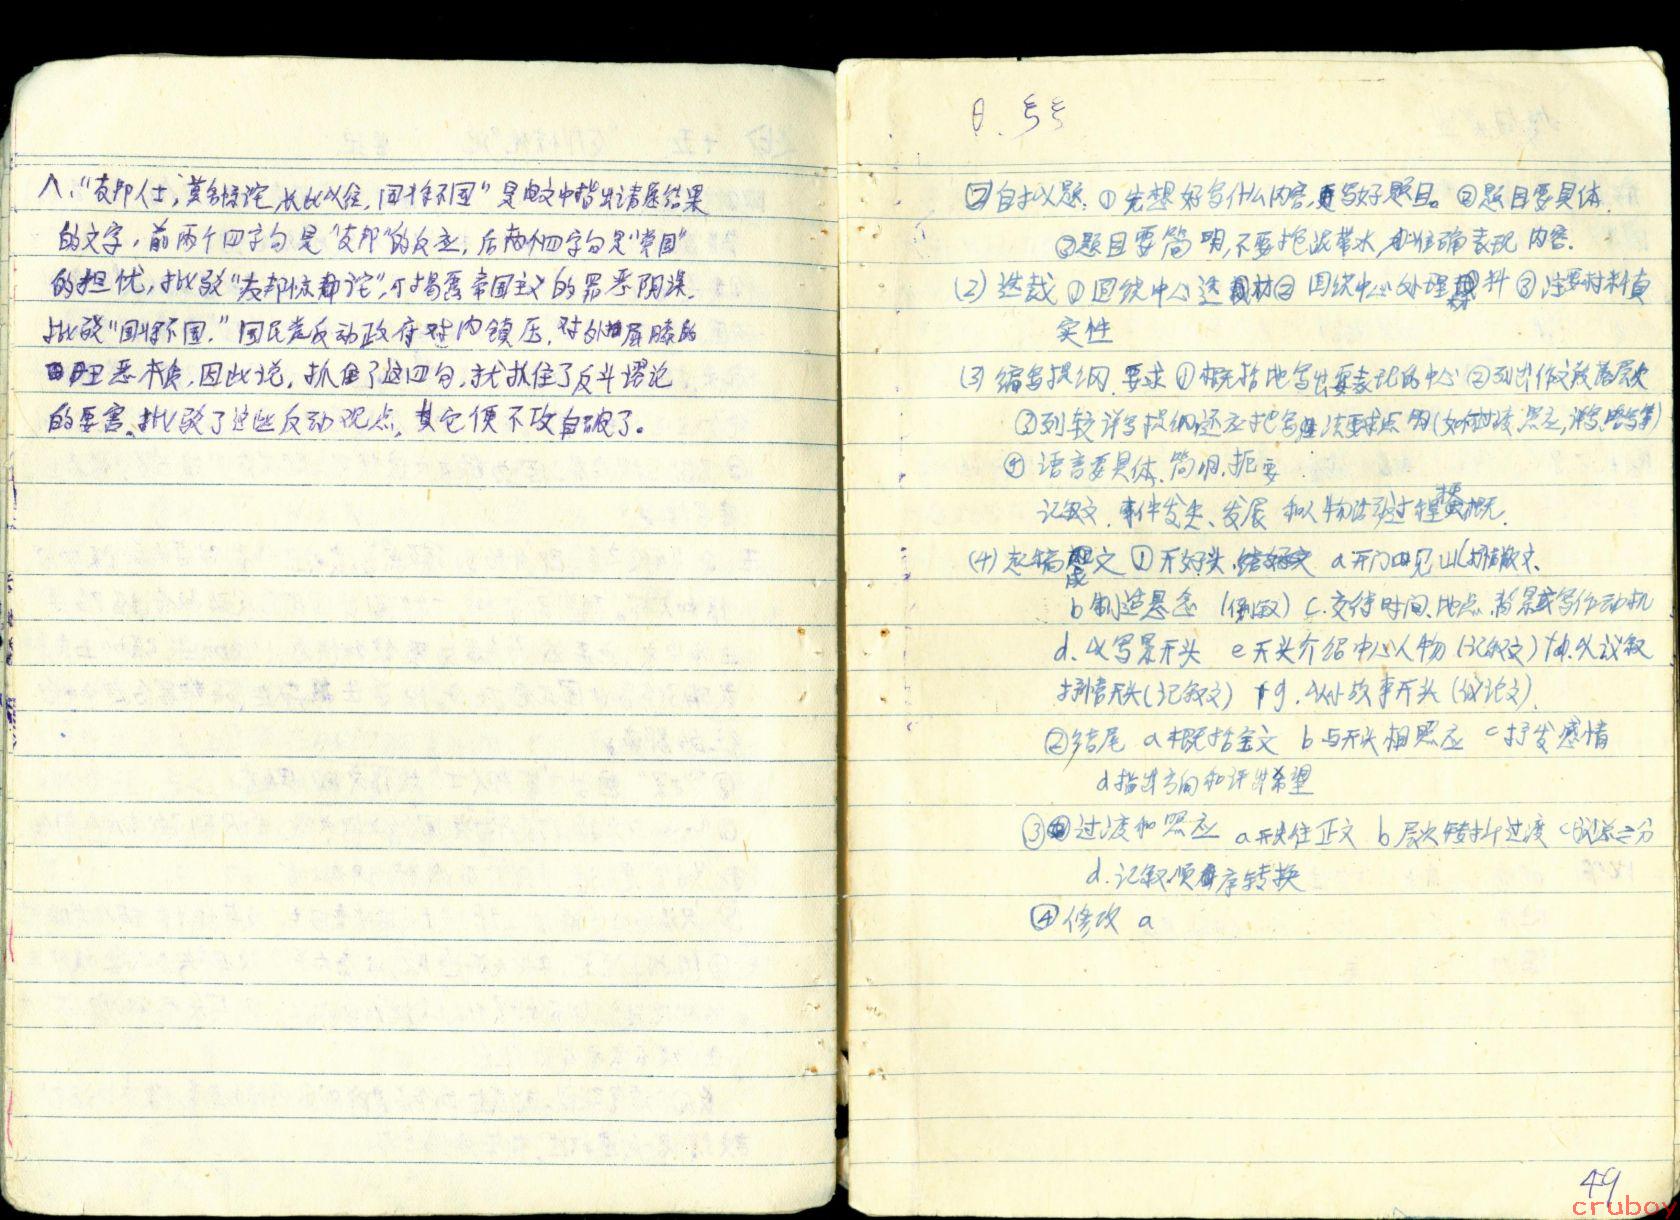 八、"友邦人士,莫名惊诧,长此以往,国将不国"是电文中指出请愿结果
的文字,前两个四字句是"友邦"的反应,后两个四字句是"党国"
的担忧,批驳"友邦惊诧",可揭露帝国主义的罪恶阴谋.
批驳"国将不国."国民党反动政府对内镇压,对外屈膝的
罪恶本质,因此说,抓住了这四句,就抓住了反斗谬论
的要害。批驳了这些反动观点,其它便不攻自破了。
②自拟题:①先想好写什么内容,再写好题目。②题目要具体.
③题目要简明,不要拖泥带水,准确表现内容.
(2)选裁①围绕中心选材②围绕中心处理材料③注要材料真
实性
(3)编写提纲.要求①概括地写出要表现的中心②列出作文段落层次
③列较详写提纲还应把写法要求点明(如何过渡,照应,详写,略写等)
④语言要具体.简明.扼要
记叙文.事件发生、发展和人物活动过程概.
(4)起稿成文①开好头.a开门见山(抒情散文.
b制造悬念(倒叙)c.交待时间、地点.背景或写作动机
d.以写景开头 e开头介绍中心人物(记叙文)f.以议叙
抒情开头(记叙文) g.以小故事开头(议论文).
②结尾 a概括全文 b与开头相照应 c抒发感情
d指出方向和评出希望
③过渡和照应 a开头住正文 b层次转折过渡 c总分
d.记叙顺序转换
④修改 a
49
cruboy